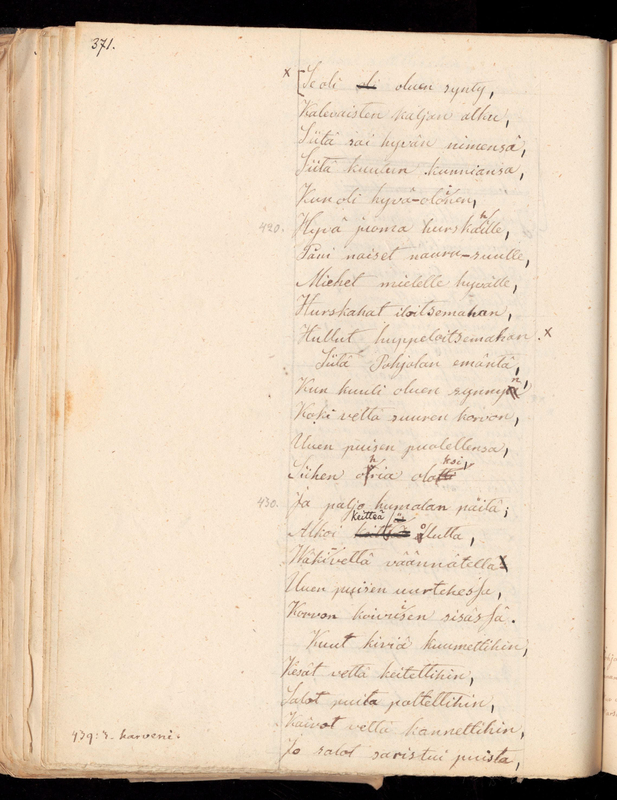 371.
x [Se oli oli oluen synty,
Kalevaisten kaljan alku,
Siitä sai hyvän nimensä,
Siitä kuulun kunniansa,
Kun oli hyvä-oloinen,
420. Hyvä juoma hurskahille,
Pani naiset nauru-suulle,
Miehet mielelle hyvälle,
Hurskahat iloitsemahan,
Hullut huppeloitsemahan. x
Siitä Pohjolan emäntä,
Kun kuuli oluen synnyn,
Koki vettä suuren korvon,
Uuen puisen puolellensa,
Siihen ohria oloksi,
430. Ja paljo humalan päitä;
Alkoi keitteä olutta,
Wäkivettä väännätellä
Uuen puisen uurtehessa,
Korvon koivuisen sisässä.
Kuut kiviä kuumettihin,
Kesät vettä keitettihin,
Salot puita poltettihin,
Kaivot vettä kannettihin,
Jo salot saristui puista,
439: 3. harveni.